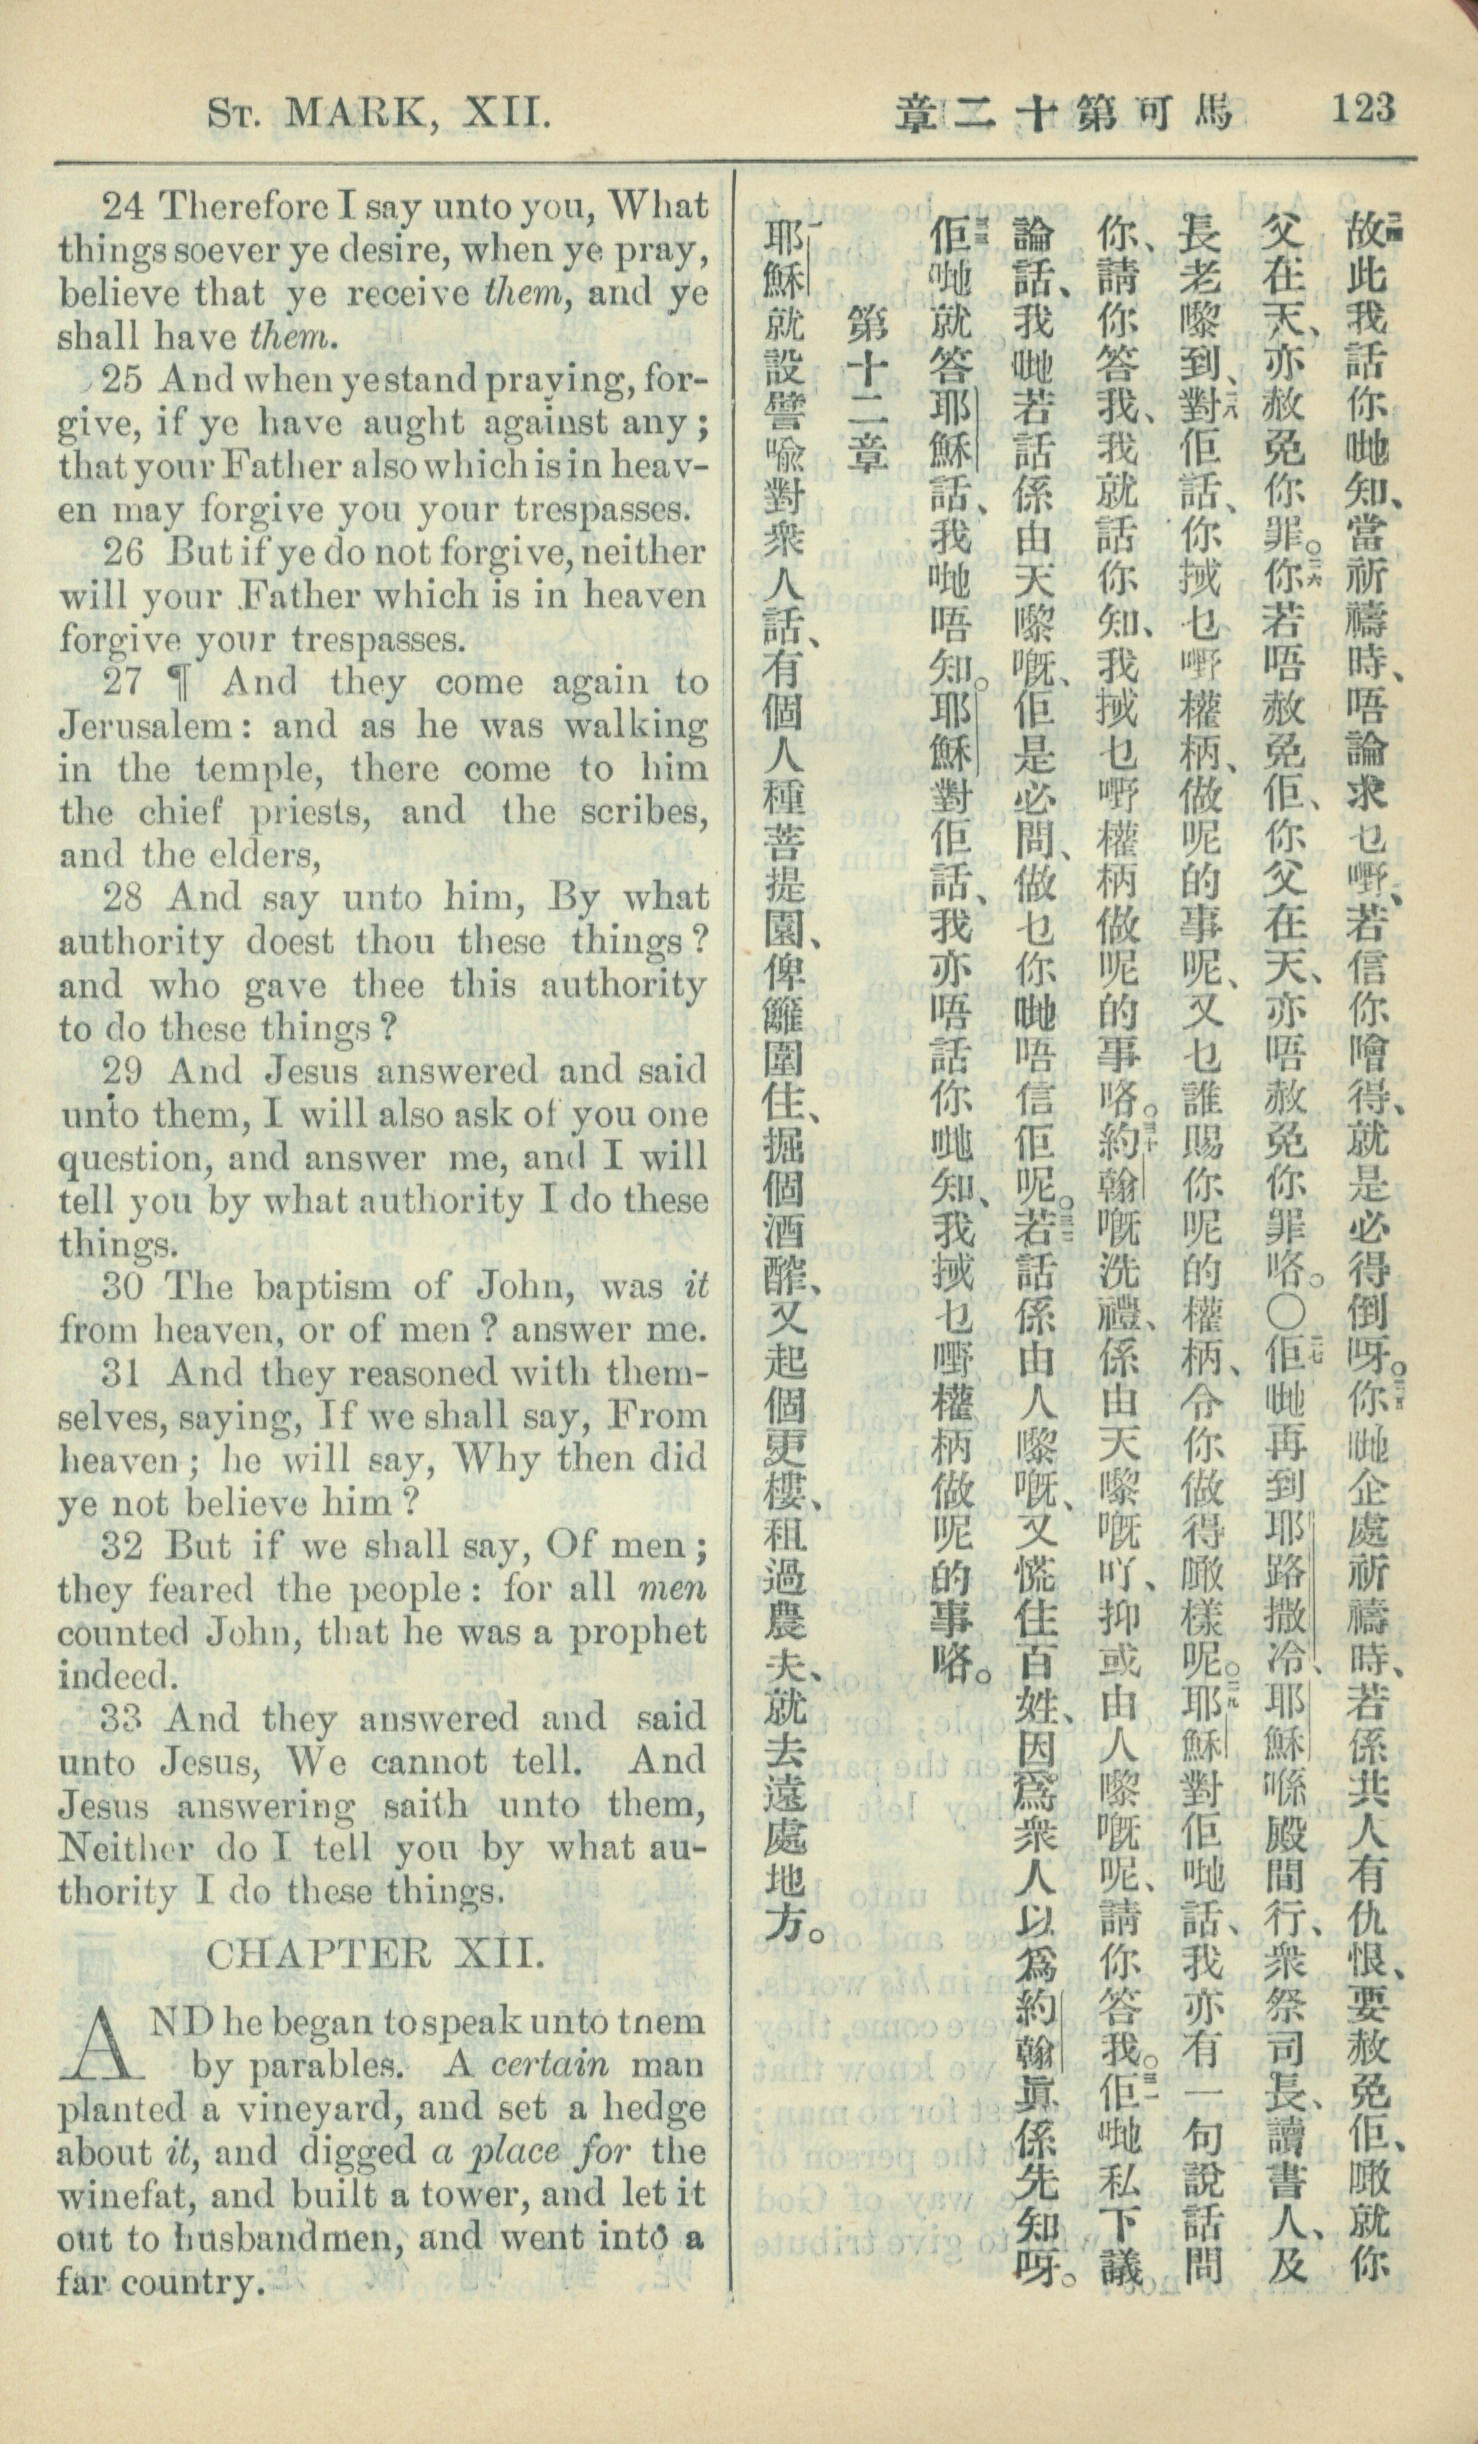 St. MARK, XII.
馬可第十二章
123
24 Therefore I say unto you, What
things soever ye desire, when ye pray,
believe that ye receive them, and ye
shall have them.
25 And when ye stand praying, for-
give, if ye have aught against any;
that your Father also which is in heav-
en may forgive you your trespasses.
26 But if ye do not forgive, neither
will your Father which is in heaven
forgive your trespasses.
27 ¶ And they come again to
Jerusalem: and as he was walking
in the temple, there come to him
the chief priests, and the scribes,
and the elders,
28 And say unto him, By what
authority doest thou these things?
and who gave thee this authority
to do these things?
29 And Jesus answered and said
unto them, I will also ask of you one
question, and answer me, and I will
tell you by what authority I do these
things.
30 The baptism of John, was it
from heaven, or of men? answer me.
31 And they reasoned with them-
selves, saying, If we shall say, From
heaven; he will say, Why then did
ye not believe him?
32 But if we shall say, Of men;
they feared the people: for all men
counted John, that he was a prophet
indeed.
33 And they answered and said
unto Jesus, We cannot tell. And
Jesus answering saith unto them,
Neither do I tell you by what au-
thority I do these things.
CHAPTER XII.
AND he began to speak unto them
by parables. A certain man
planted a vineyard, and set a hedge
about it, and digged a place for the
winefat, and built a tower, and let it
out to husbandmen, and went into a
far country.
二四故此我話你哋知、當祈禱時、唔論求乜嘢、若信你噲得、就是必得倒呀。二五你哋企處祈禱時、若係共人有仇恨、要赦免佢、噉就你
父在天、亦赦免你罪。二六你若唔赦免佢、你父在天、亦唔赦免你罪咯。〇二七佢哋再到耶路撒冷、耶穌喺殿間行、衆祭司長、讀書人、及
長老嚟到、二八對佢話、你㨢乜嘢權柄、做呢的事呢、又乜誰賜你呢的權柄、令你做得噉樣呢。二九耶穌對佢哋話、我亦有一句說話問
你、請你答我、我就話你知、我㨢乜嘢權柄做呢的事咯。三十約翰嘅洗禮、係由天嚟嘅吖、抑或由人嚟嘅呢、請你答我。三一佢哋私下議
論話、我哋若話係由天嚟嘅、佢是必問、做乜你哋唔信佢呢。三二若話係由人嚟嘅、又慌住百姓、因爲衆人以爲約翰眞係先知呀。
三三佢哋就答耶穌話、我哋唔知。耶穌對佢話、我亦唔話你哋知、我㨢乜嘢權柄做呢的事咯。
第十二章
一耶穌就設譬喩對衆人話、有個人種菩提園、俾籬圍住、掘個酒醡、又起個更樓、租過農夫、就去遠處地方。